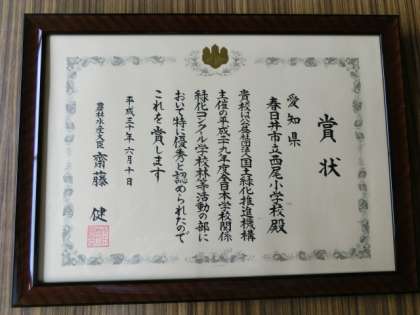 賞状
愛知県
春日井市立西尾小学校殿
貴校は公益社団法人国土緑化推進機構
主催の平成二十九年度全日本学校関係
緑化コンクール学校林等活動の部に
おいて特に優秀と認められたので
これを賞します
平成三十年六月十日
農林水産大臣 齋藤 健